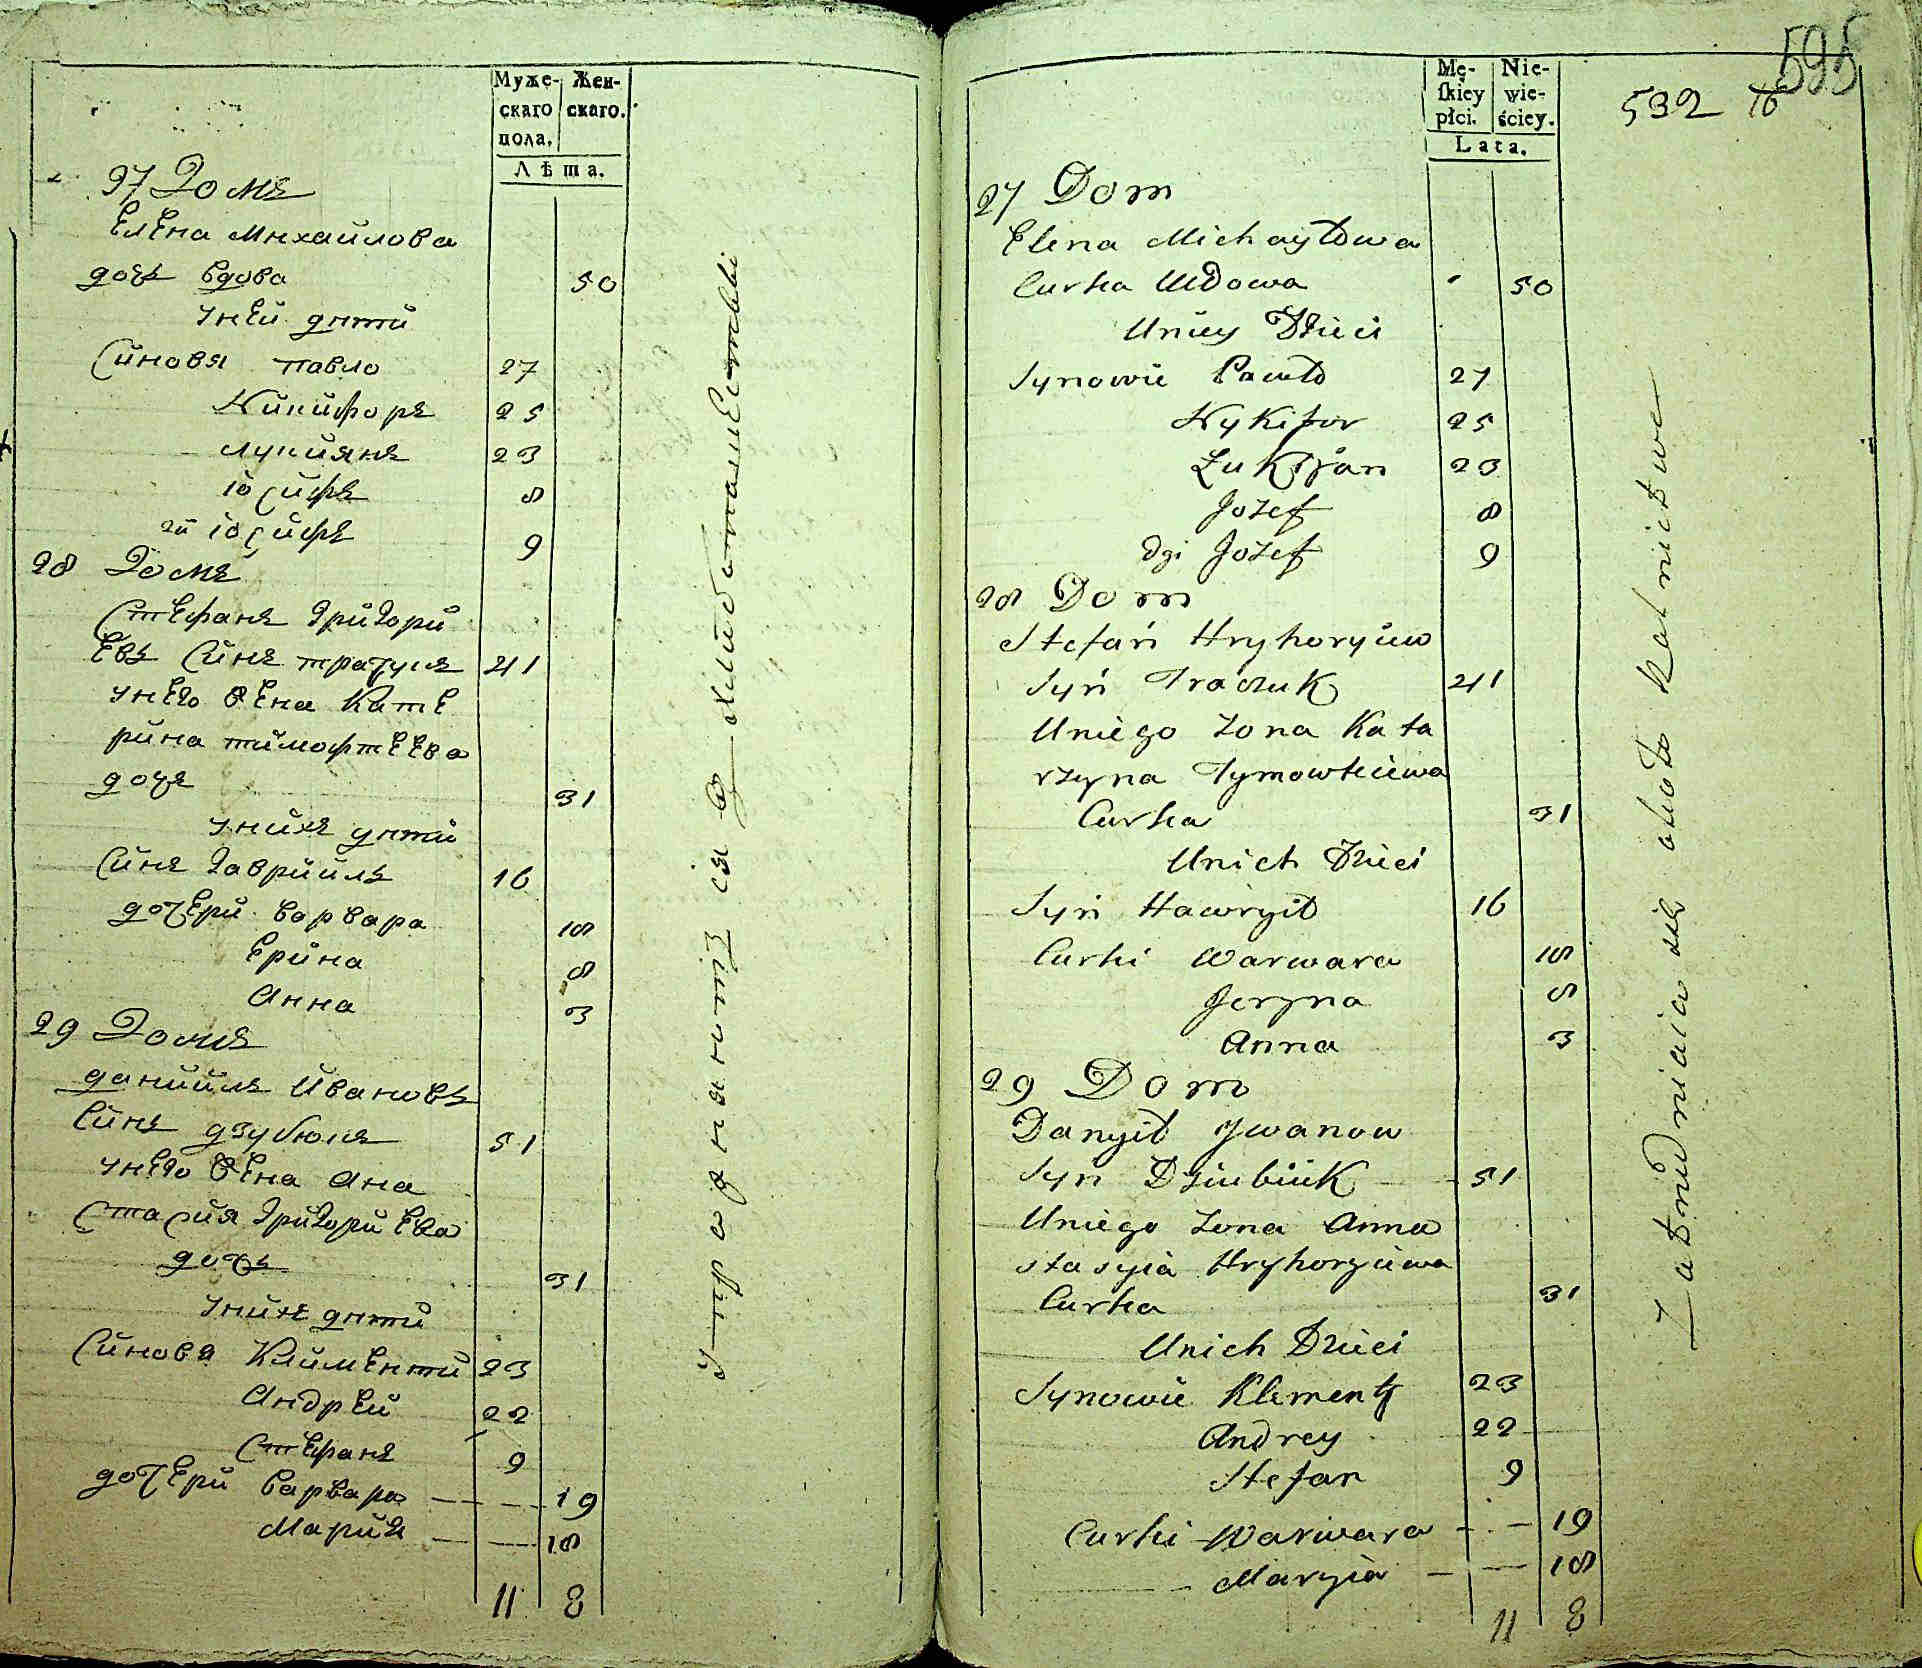 Муже-
скаго
пола.
Жен-
скаго.
Лѣта.
27 Домъ
Елена Михайлова
дочь вдова 50
уней дѣти
Синовя павло 27
Никифоръ 25
лукиянъ 23
іосифъ 8
2й іосифъ 9
28 Домъ
Стефанъ Григори
евъ Синъ трачукъ 41
унего жена Кате
рина тимофтеева
дочь 31
унихъ дѣти
Синъ Гавриилъ 16
дочери варвара 18
Ерина 8
Анна 3
29 Домъ
даниилъ Ивановъ
Синъ дзубюкъ 51
унего жена Ана
стасия Григориева
дочь 31
унихъ дѣти
Синовя Клименти 23
Андрей 22
Стефанъ 9
дочери варвара 19
Мария 18
11 8
упражняются в хлебопашестви
595
532
Mę-
ſkiey
płci.
Nie-
wie-
ściey.
Lata.
27 Dom
Elena Michayłowa
Curka Wdowa 50
Uniey Dzieci
Synowie Pawło 27
Nykifor 25
Łukyan 23
Jozef 8
dgi Jozef 9
28 Dom
Stefan Hryhoryiew
Syn Traczuk 41
Uniego Zona Kata
rzyna Tymowteiewa
Curka 31
Unich Dzieci
Syn Hawryło 16
Curki Warwara 18
Jeryna 8
Anna 3
29 Dom
Danyiło Jwanow
Syn Dziubiuk 51
Uniego Zona Anna
stasyia Hryhoryiewa
Curka 31
Unich Dzieci
Synowie Klementy 23
Andrey 22
Stefan 9
Curki Warwara 19
Maryia 18
11 8
Zatrudniaia się około Rolnictwa